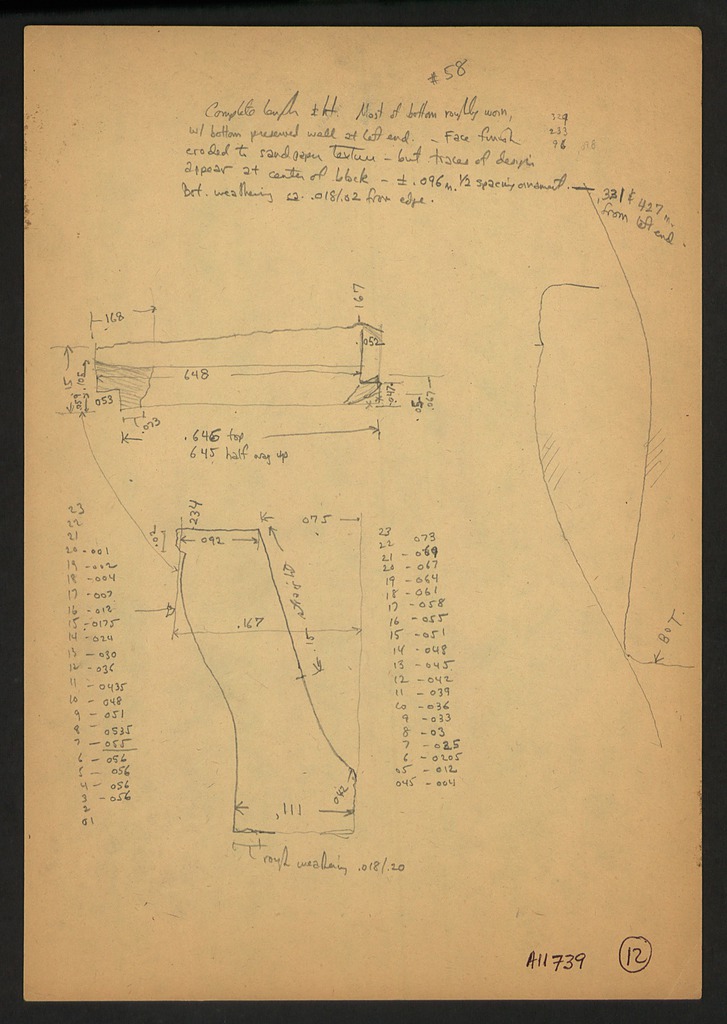 #58
Complete length & ht. Most of bottom roughly worn,
w/ bottom preserved well at left end. - Face finish
eroded to sandpaper texture - but traces of design
appear at center of block - ± .096 m. 1/2 spacing ornament. .331 & 427 m.
from left end.
Bot. weathering ca. .018/.02 from edge.
329
233
96
.168
.167
.052
.15
.105
.059
053
648
.033
.047
.05
.067
.646 top
645 half way up
.234
075
.02
092
.15 straight
.167
.111
042
rough weathering .018/.20
BOT.
23
22
21
20 - 001
19 - 002
18 - 004
17 - 007
16 - 012
15 - 0175
14 - 024
13 - 030
12 - 036
11 - 0435
10 - 048
9 - 051
8 - 0535
7 - 055
6 - 056
5 - 056
4 - 056
3 - 056
2
01
23 073
22
21 - 069
20 - 067
19 - 064
18 - 061
17 - 058
16 - 055
15 - 051
14 - 048
13 - 045
12 - 042
11 - 039
10 - 036
9 - 033
8 - 03
7 - 025
6 - 0205
05 - 012
045 - 004
A11739
12